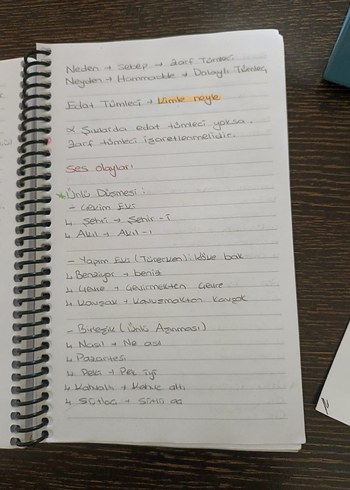 Neden → Sebep → Zarf Tümleci
Neyden → Hammadde → Dolaylı Tümleç
Edat Tümleci → Kimle neyle
* Şıklarda edat tümleci yoksa
zarf tümleci işaretlenmelidir.
Ses olayları
* Ünlü Düşmesi:
- Çekim Eki
↳ Şehri → Şehir-i
↳ Aklı → Akıl-ı
- Yapım Eki (Türerken): Köke bak
↳ Benziyor → beniz
↳ Çevre → Çevirmekten Çevre
↳ Kavşak → Kavuşmakten Kavşak
- Birleşik (Ünlü Aşınması)
↳ Nasıl → Ne asıl
↳ Pazartesi
↳ Peki → Pek iyi
↳ Kahvaltı → Kahve altı
↳ Sütlaç → Sütlü aş